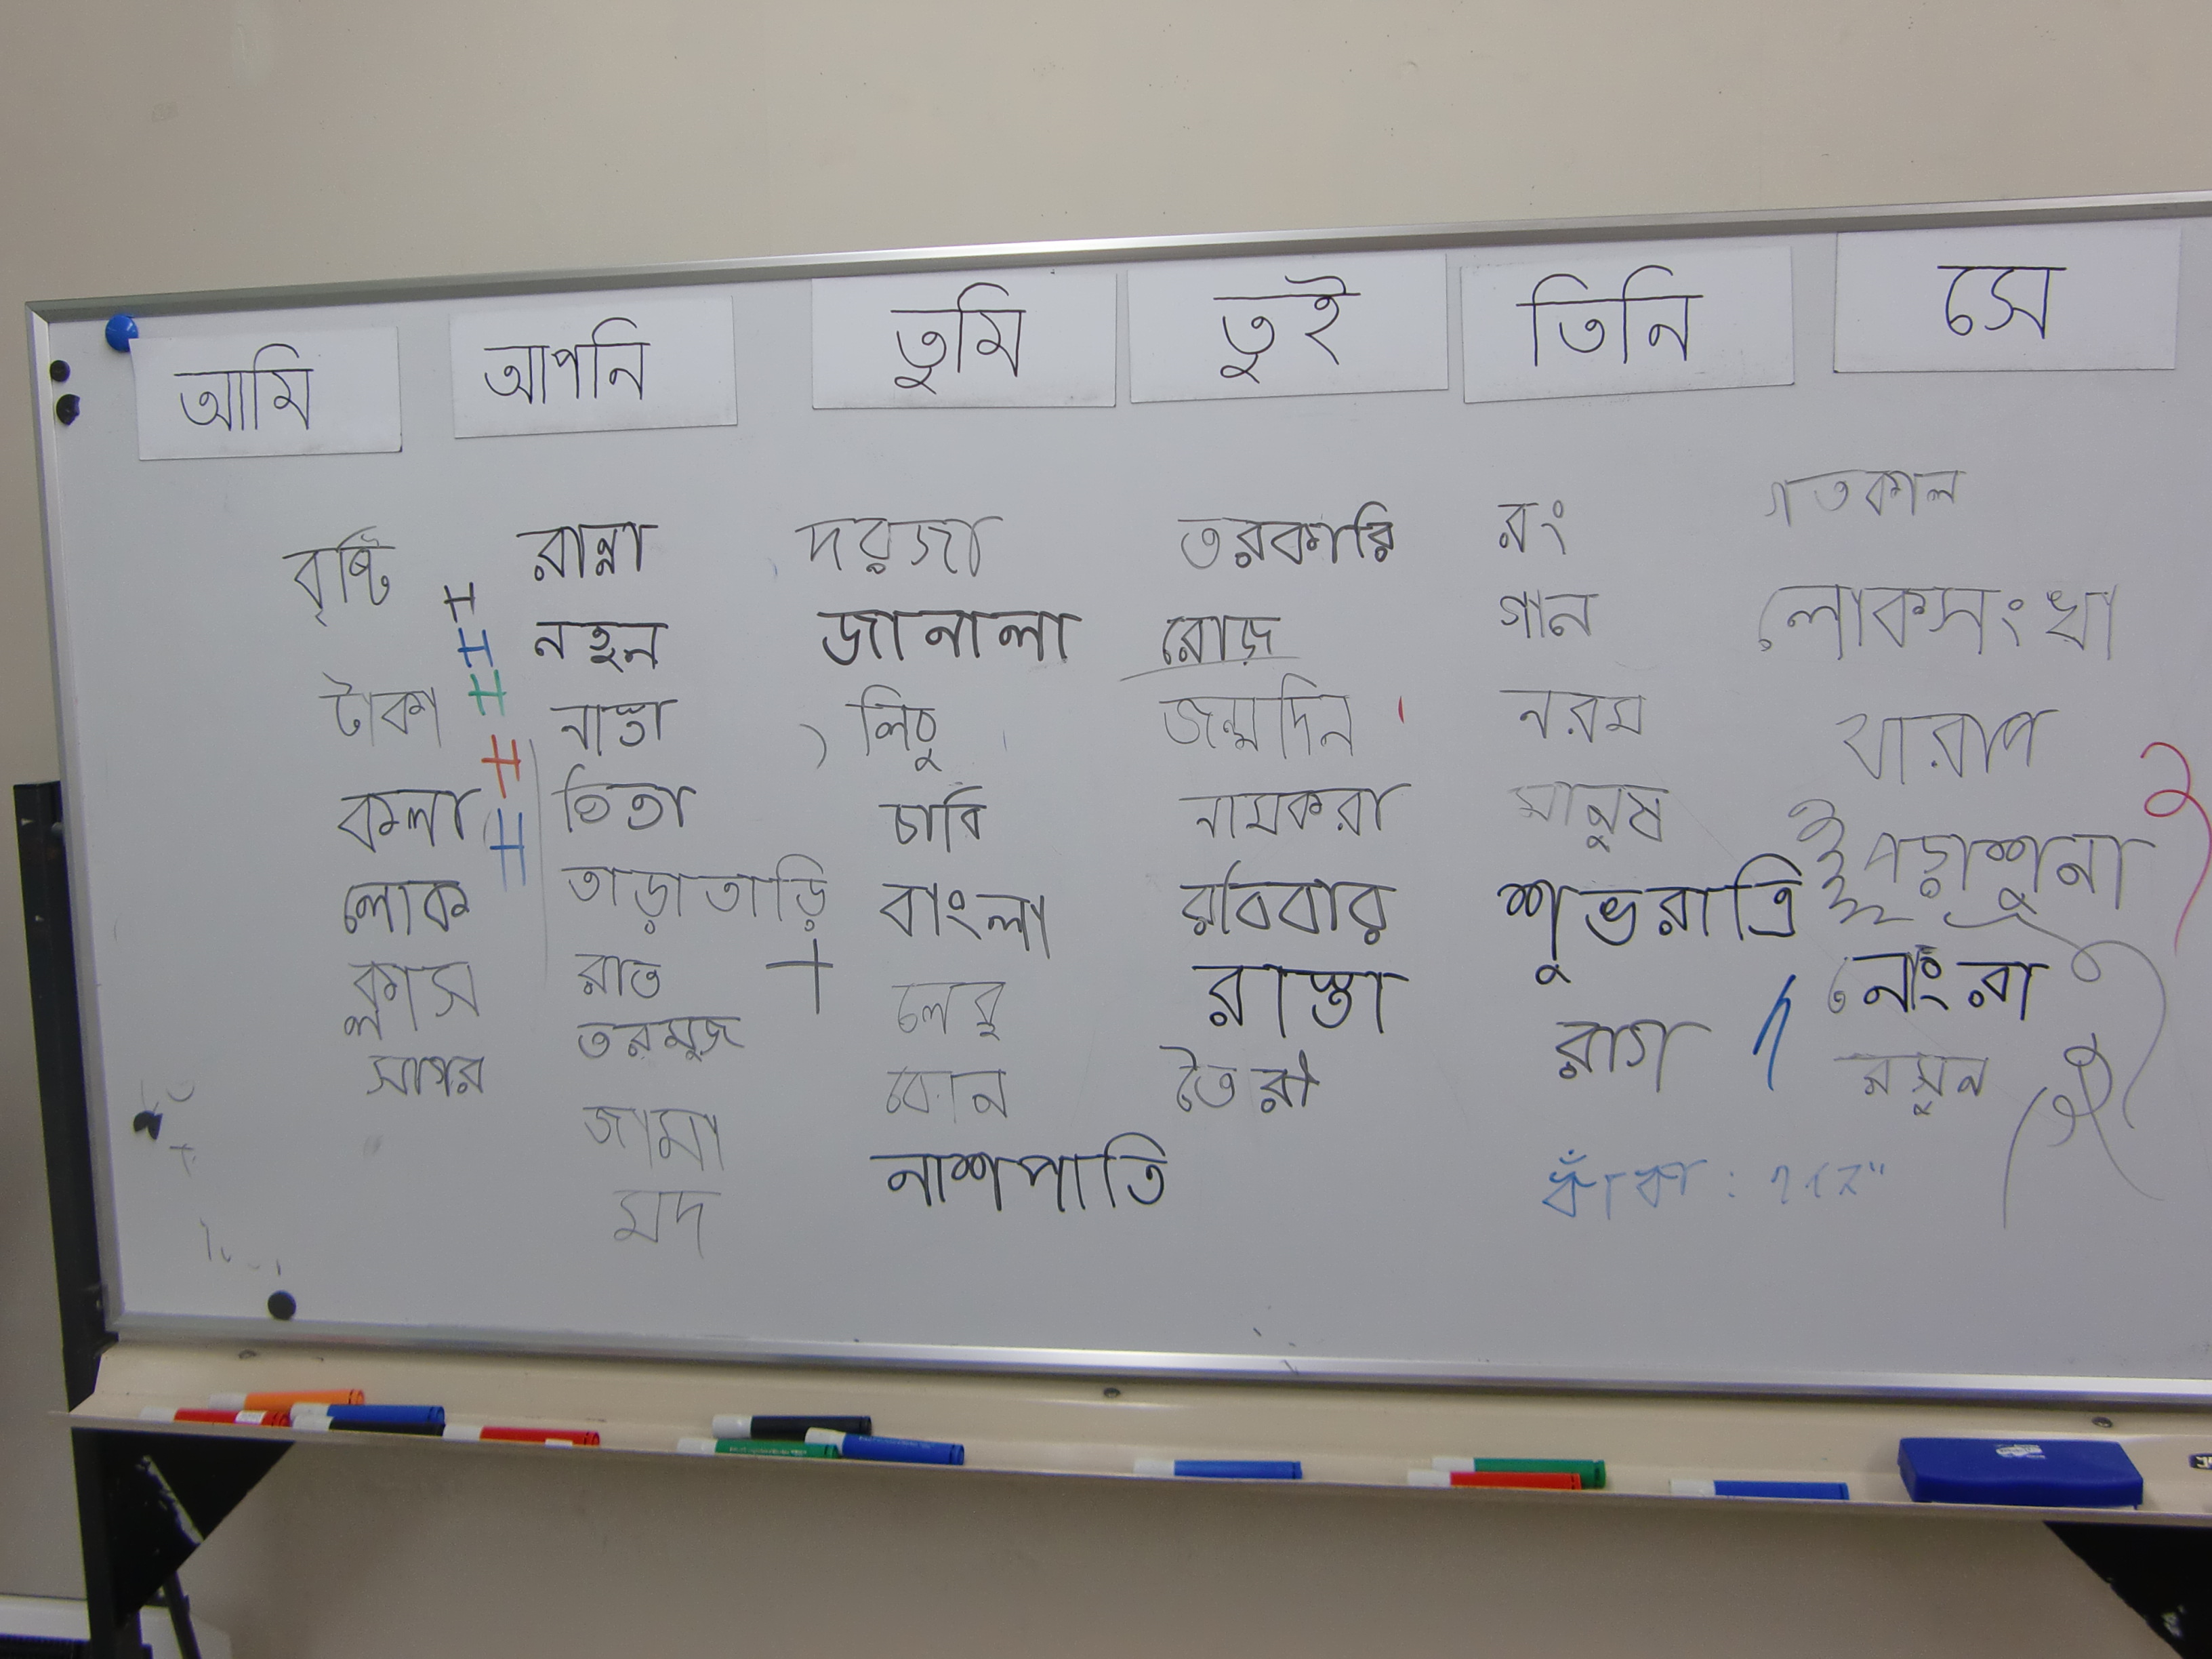 আমি আপনি তুমি তুই তিনি সে
বৃষ্টি রান্না দরজা তরকারি রং গতকাল
নতুন জানালা রোজ গান লোকসংখা
টাকা নাস্তা লিচু জন্মদিন নরম খারাপ
কলা তিতা চাবি নামকরা মানুষ পড়াশুনা
লোক তাড়াতাড়ি বাংলা রবিবার শুভরাত্রি
ক্লাস রাত লেবু রাস্তা রাগ নোংরা
সাগর তরমুজ ফোন তৈরী রসুন
জামা নাশপাতি
মদ